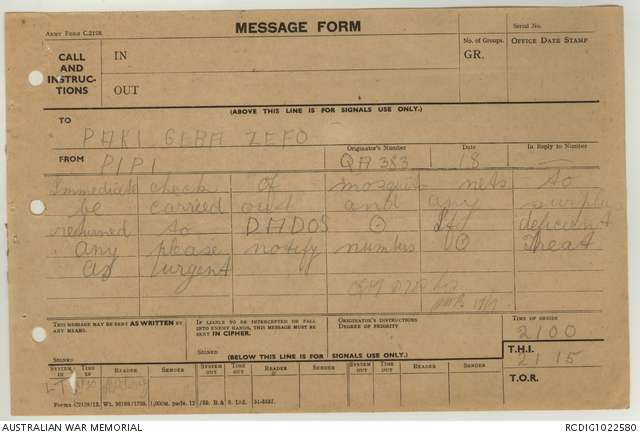 ARMY FORM C.2128
MESSAGE FORM
Serial No.
CALL AND INSTRUCTIONS
IN
OUT
No. of Groups.
GR.
OFFICE DATE STAMP
(ABOVE THIS LINE IS FOR SIGNALS USE ONLY.)
TO
PAKI GEBA ZEFO
FROM
PIPI
Originator's Number
QA 383
Date
18
In Reply to Number
Immediate check of mosquito nets to
be carried out and any surplus
returned to DADOS ⊙ If deficient
any please notify number ⊙ Treat
as urgent
THIS MESSAGE MAY BE SENT AS WRITTEN BY ANY MEANS.
SIGNED
IF LIABLE TO BE INTERCEPTED OR FALL INTO ENEMY HANDS, THIS MESSAGE MUST BE SENT IN CIPHER.
SIGNED
ORIGINATOR'S INSTRUCTIONS
DEGREE OF PRIORITY
TIME OF ORIGIN
2100
T.H.I.
2115
T.O.R.
(BELOW THIS LINE IS FOR SIGNALS USE ONLY.)
SYSTEM IN TIME IN READER SENDER SYSTEM OUT TIME OUT READER SENDER SYSTEM OUT TIME OUT READER SENDER
AUSTRALIAN WAR MEMORIAL
RCDIG1022580